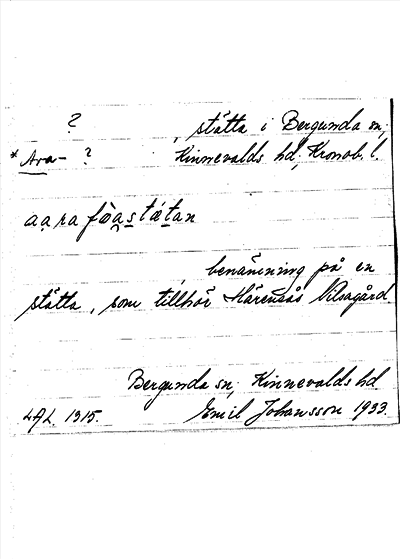 ?
, stätta i Bergunda sn,
* Ara- ? Kinnevalds hd, Kronob. l.
aạra fòạs̱tǽtan
benämning på en
stätta, som tillhör Härensås Klsagård
Bergunda sn, Kinnevalds hd
LAL. 1315. Emil Johansson 1933.